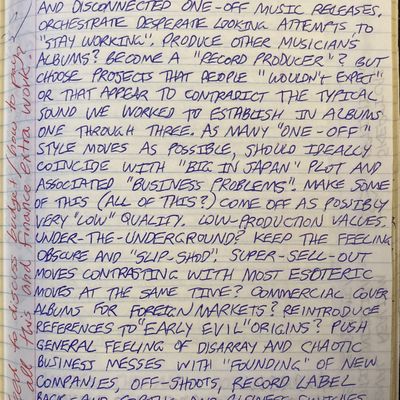 AND DISCONNECTED ONE-OFF MUSIC RELEASES.
ORCHESTRATE DESPERATE LOOKING ATTEMPTS TO
"STAY WORKING". PRODUCE OTHER MUSICIANS
ALBUMS? BECOME A "RECORD PRODUCER"? BUT
CHOOSE PROJECTS THAT PEOPLE "WOULDN'T EXPECT"
OR THAT APPEAR TO CONTRADICT THE TYPICAL
SOUND WE WORKED TO ESTABLISH IN ALBUMS
ONE THROUGH THREE. AS MANY "ONE-OFF"
STYLE MOVES AS POSSIBLE, SHOULD IDEALLY
COINCIDE WITH "BIG IN JAPAN" PLOT AND
ASSOCIATED "BUSINESS PROBLEMS". MAKE SOME
OF THIS (ALL OF THIS?) COME OFF AS POSSIBLY
VERY "LOW" QUALITY. LOW-PRODUCTION VALUES.
UNDER-THE-UNDERGROUND? KEEP THE FEELING
OBSCURE AND "SLIP-SHOD". SUPER-SELL-OUT
MOVES CONTRASTING WITH MOST ESOTERIC
MOVES AT THE SAME TIME? COMMERCIAL COVER
ALBUMS FOR FOREIGN MARKETS? REINTRODUCE
REFERENCES TO "EARLY EVIL" ORIGINS? PUSH
GENERAL FEELING OF DISARRAY AND CHAOTIC
BUSINESS MESSES WITH "FOUNDING" OF NEW
COMPANIES, OFF-SHOOTS, RECORD LABEL
to discuss budget/how to pay
all this and finance extra work.